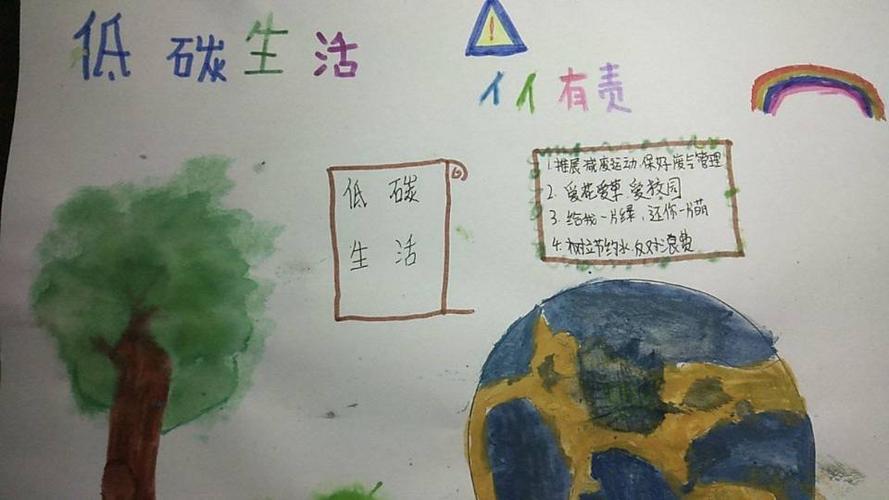 低碳生活
!
亻亻有责
低碳
生活
1.推展减废运动.保好废气管理
2.爱花爱草 爱校园
3.给我一片绿,还你一片萌
4.树立节约水 反对浪费